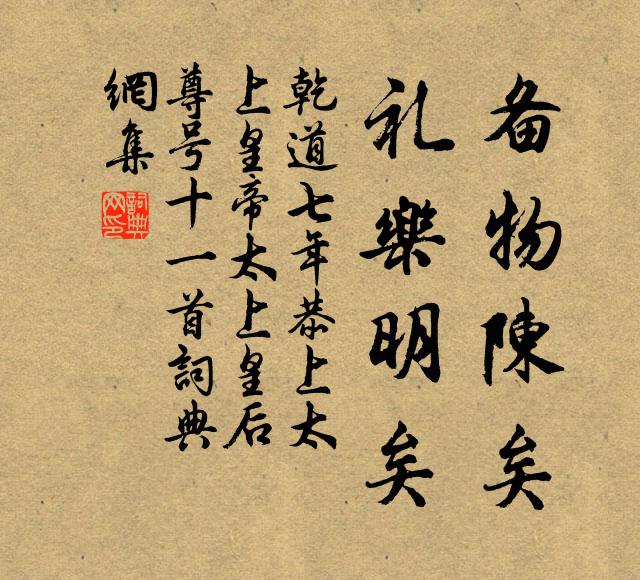 备物陳矣
礼樂明矣
乾道七年恭上太
上皇帝太上皇后
尊号十一首詞典
網集
詞典網印